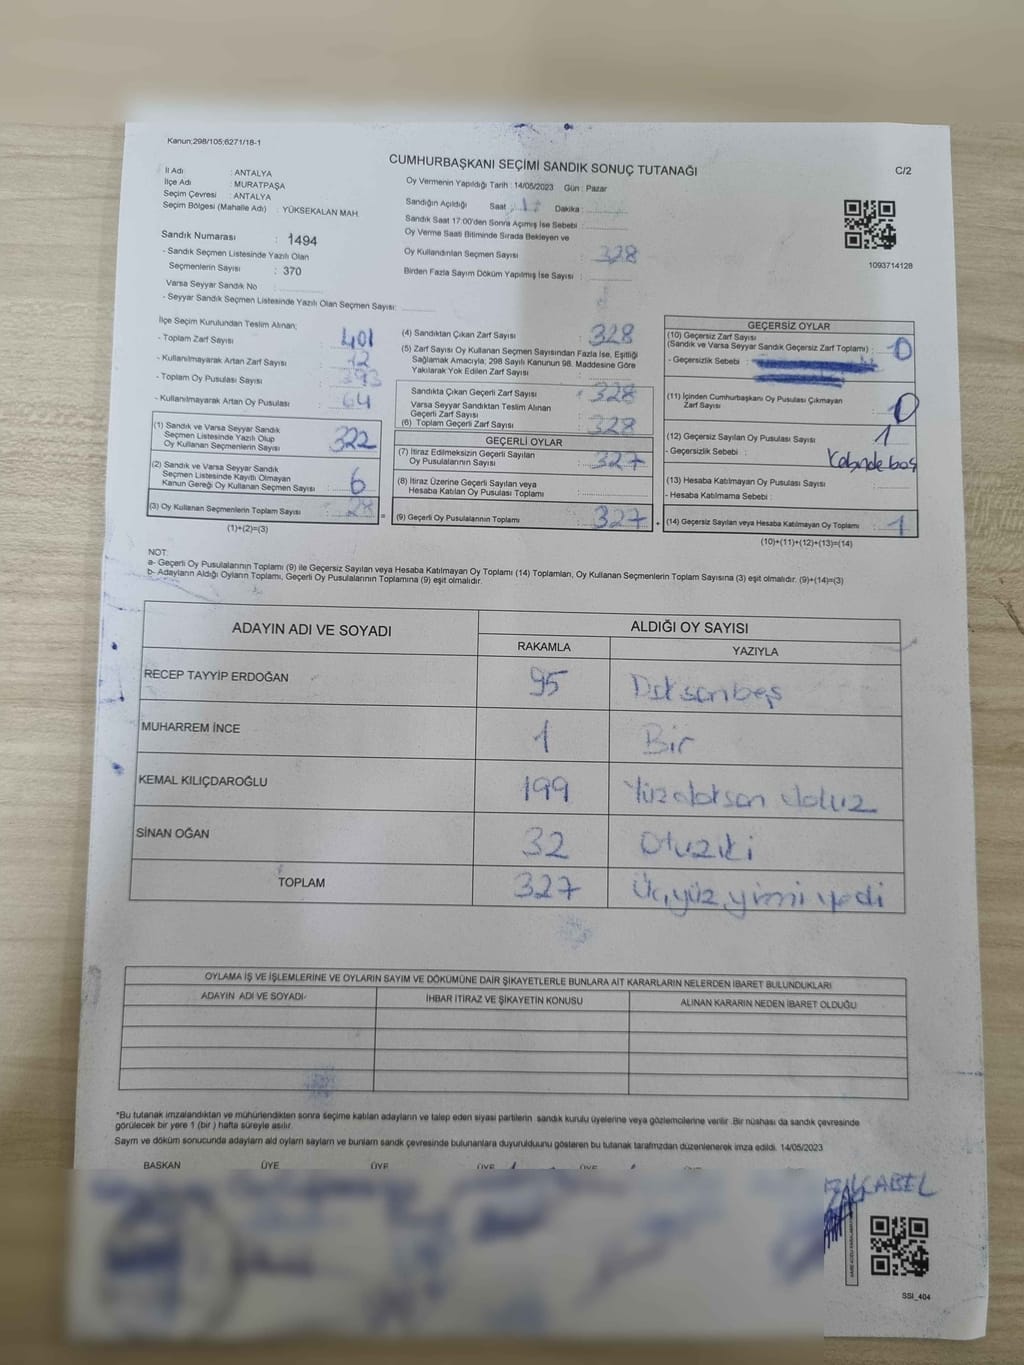 Kanun;298/105;6271/18-1
CUMHURBAŞKANI SEÇİMİ SANDIK SONUÇ TUTANAĞI
C/2
İl Adı : ANTALYA
İlçe Adı : MURATPAŞA
Seçim Çevresi : ANTALYA
Seçim Bölgesi (Mahalle Adı) : YÜKSEKALAN MAH.
Sandık Numarası : 1494
- Sandık Seçmen Listesinde Yazılı Olan
Seçmenlerin Sayısı : 370
Varsa Seyyar Sandık No :
- Seyyar Sandık Seçmen Listesinde Yazılı Olan Seçmen Sayısı:
Oy Vermenin Yapıldığı Tarih : 14/05/2023 Gün : Pazar
Sandığın Açıldığı Saat : 17 Dakika :
Sandık Saat 17:00'den Sonra Açımış İse Sebebi :
Oy Verme Saati Bitiminde Sırada Bekleyen ve
Oy Kullandırılan Seçmen Sayısı : 328
Birden Fazla Sayım Döküm Yapılmış İse Sayısı :
1093714128
İlçe Seçim Kurulundan Teslim Alınan;
- Toplam Zarf Sayısı : 401
- Kullanılmayarak Artan Zarf Sayısı : 12
- Toplam Oy Pusulası Sayısı : 393
- Kullanılmayarak Artan Oy Pusulası : 64
(1) Sandık ve Varsa Seyyar Sandık
Seçmen Listesinde Yazılı Olup
Oy Kullanan Seçmenlerin Sayısı : 322
(2) Sandık ve Varsa Seyyar Sandık
Seçmen Listesinde Kayıtlı Olmayan
Kanun Gereği Oy Kullanan Seçmen Sayısı : 6
(3) Oy Kullanan Seçmenlerin Toplam Sayısı : 28
(1)+(2)=(3)
(4) Sandıktan Çıkan Zarf Sayısı : 328
(5) Zarf Sayısı Oy Kullanan Seçmen Sayısından Fazla İse, Eşitliği
Sağlamak Amacıyla; 298 Sayılı Kanunun 98. Maddesine Göre
Yakılarak Yok Edilen Zarf Sayısı :
Sandıkta Çıkan Geçerli Zarf Sayısı : 328
Varsa Seyyar Sandıktan Teslim Alınan
Geçerli Zarf Sayısı :
(6) Toplam Geçerli Zarf Sayısı : 328
GEÇERLİ OYLAR
(7) İtiraz Edilmeksizin Geçerli Sayılan
Oy Pusulalarının Sayısı : 327
(8) İtiraz Üzerine Geçerli Sayılan veya
Hesaba Katılan Oy Pusulası Toplamı :
(9) Geçerli Oy Pusulalarının Toplamı : 327
GEÇERSİZ OYLAR
(10) Geçersiz Zarf Sayısı
(Sandık ve Varsa Seyyar Sandık Geçersiz Zarf Toplamı) : 0
- Geçersizlik Sebebi :
(11) İçinden Cumhurbaşkanı Oy Pusulası Çıkmayan
Zarf Sayısı : 0
(12) Geçersiz Sayılan Oy Pusulası Sayısı : 1
- Geçersizlik Sebebi :
(13) Hesaba Katılmayan Oy Pusulası Sayısı :
- Hesaba Katılmama Sebebi :
(14) Geçersiz Sayılan veya Hesaba Katılmayan Oy Toplamı : 1
(10)+(11)+(12)+(13)=(14)
NOT:
a- Geçerli Oy Pusulalarının Toplamı (9) ile Geçersiz Sayılan veya Hesaba Katılmayan Oy Toplamı (14) Toplamları, Oy Kullanan Seçmenlerin Toplam Sayısına (3) eşit olmalıdır. (9)+(14)=(3)
b- Adayların Aldığı Oyların Toplamı, Geçerli Oy Pusulalarının Toplamına (9) eşit olmalıdır.
ADAYIN ADI VE SOYADI ALDIĞI OY SAYISI
RAKAMLA YAZIYLA
RECEP TAYYİP ERDOĞAN 95 Doksanbeş
MUHARREM İNCE 1 Bir
KEMAL KILIÇDAROĞLU 199 Yüzdoksan dokuz
SİNAN OĞAN 32 Otuziki
TOPLAM 327 Üçyüz yirmi yedi
OYLAMA İŞ VE İŞLEMLERİNE VE OYLARIN SAYIM VE DÖKÜMÜNE DAİR ŞİKAYETLERLE BUNLARA AİT KARARLARIN NELERDEN İBARET BULUNDUKLARI
ADAYIN ADI VE SOYADI İHBAR İTİRAZ VE ŞİKAYETİN KONUSU ALINAN KARARIN NEDEN İBARET OLDUĞU
*Bu tutanak imzalandıktan ve mühürlendikten sonra seçime katılan adayların ve talep eden siyasi partilerin sandık kurulu üyelerine veya gözlemcilerine verilir. Bir nüshası da sandık çevresinde
görülecek bir yere 1 (bir) hafta süreyle asılır.
Sayım ve döküm sonucunda adayların ald oyların sayları ve bunların sandk çevresinde bulunanlara duyurulduunu gösteren bu tutanak tarafmzdan düzenlenerek imza edildi. 14/05/2023
BAŞKAN ÜYE ÜYE ÜYE ÜYE
SSI_404